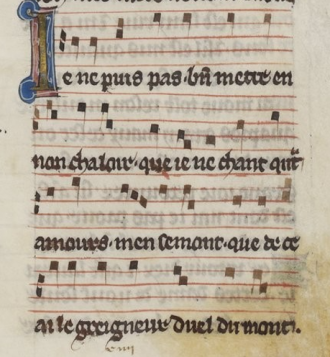 Ie ne puis pas bñ metre en
non chaloir. que ie ne chant qñt
amours. men semont. que de ce
ai le greigneur duel du mont.